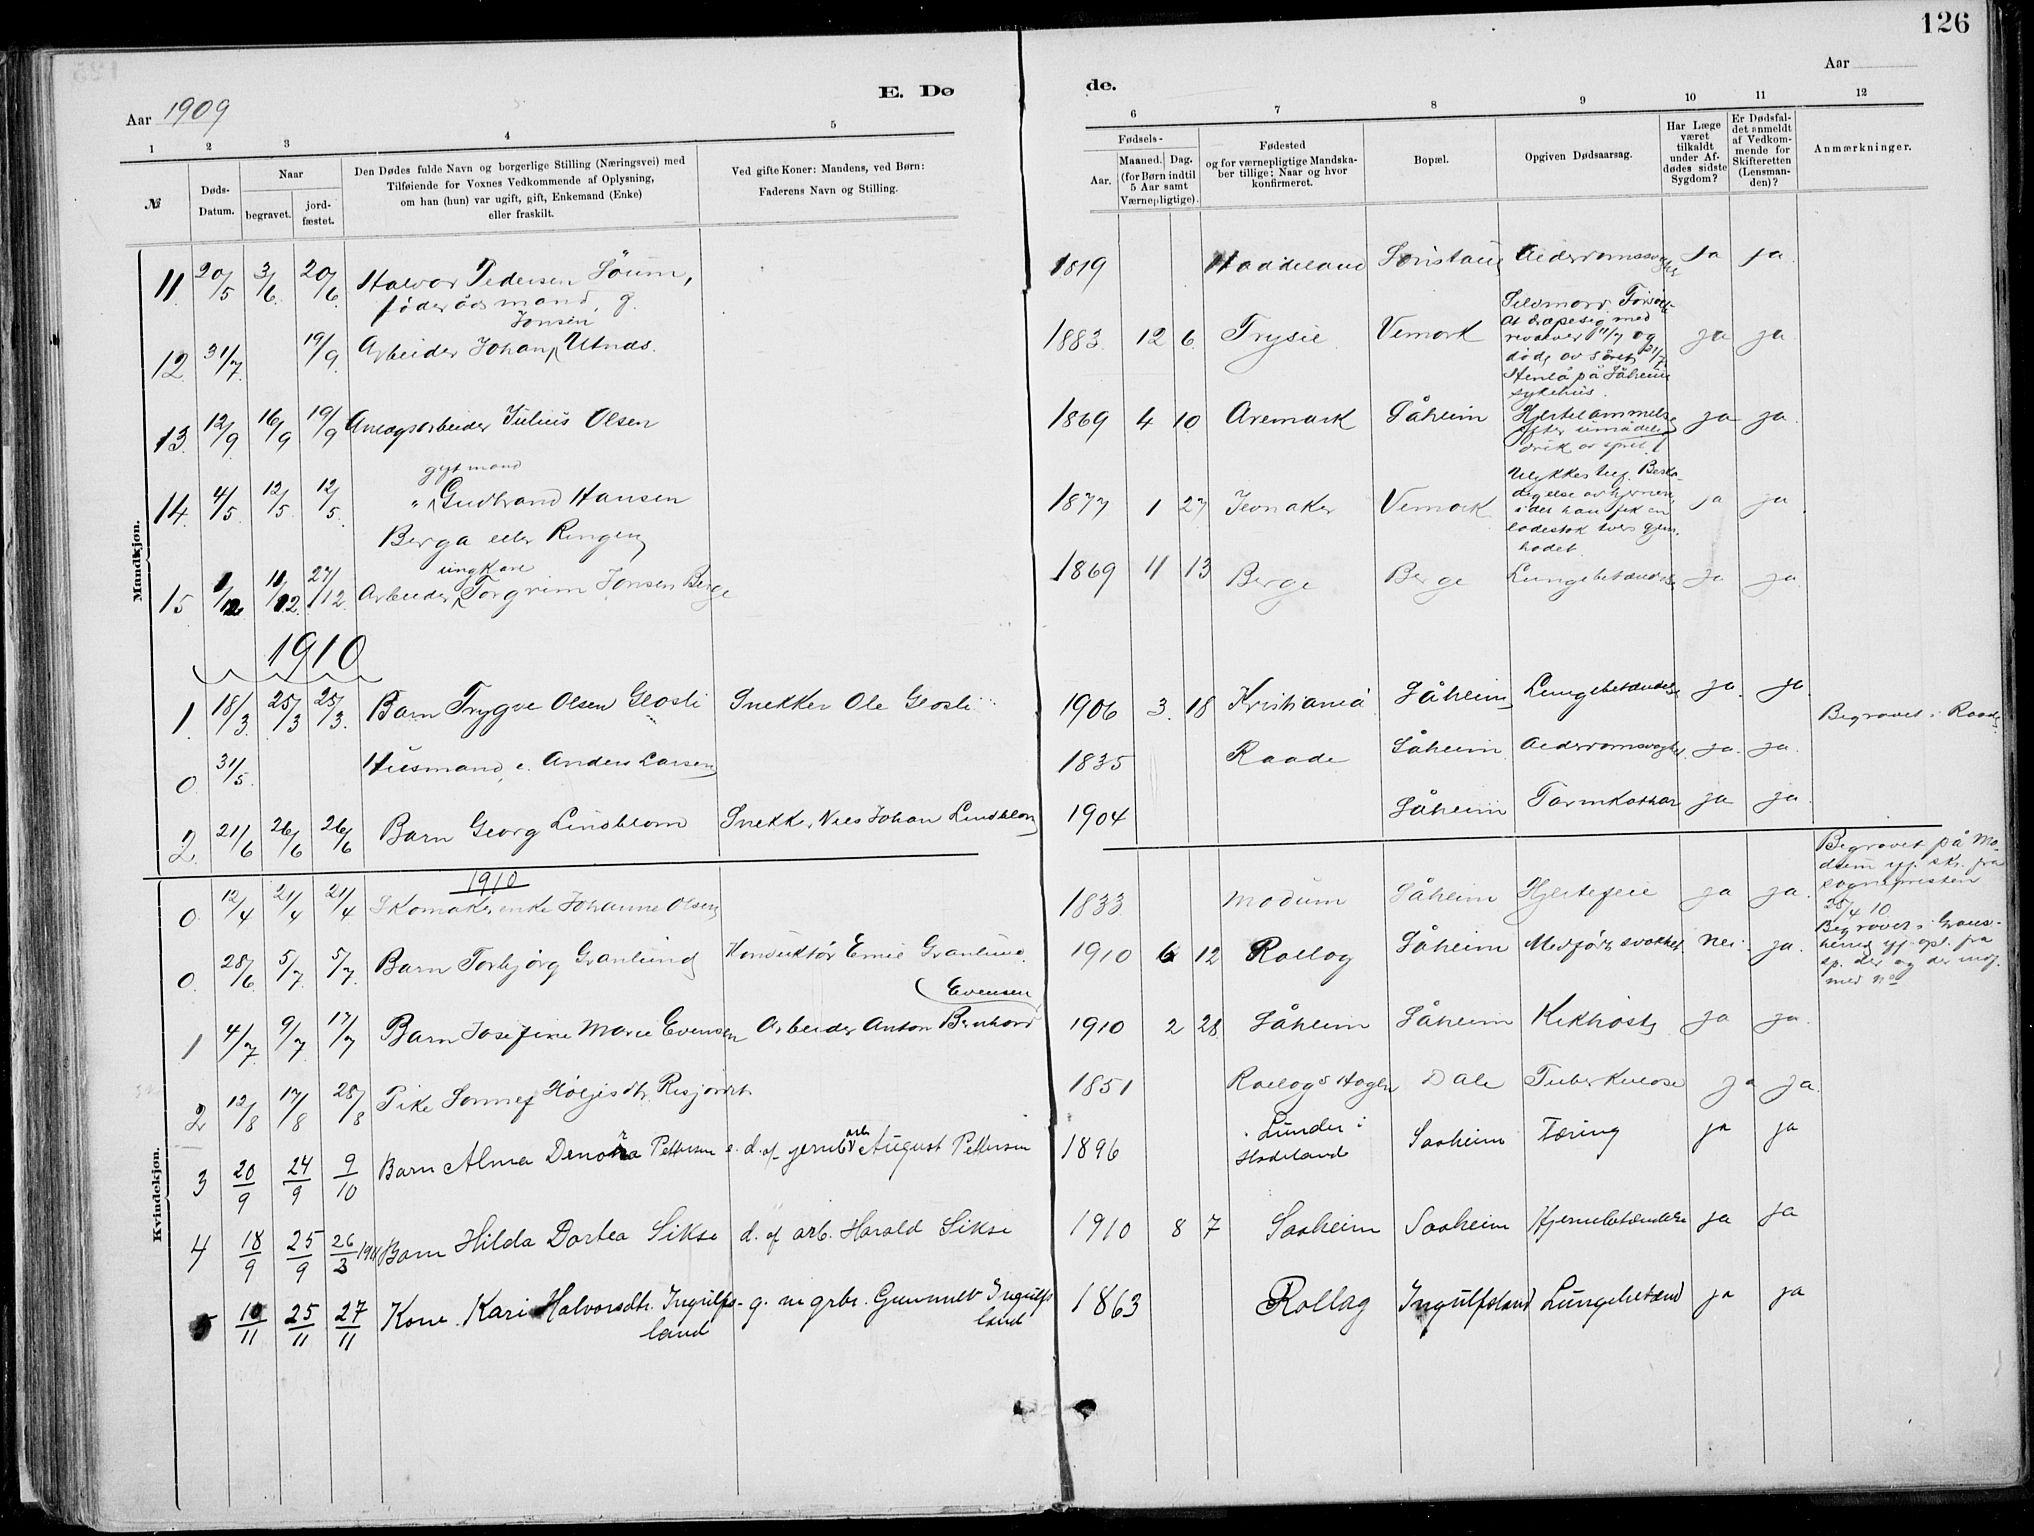 126
Aar 1909
E. Dø
de.
Aar
1 2 3 4 5 6 7 8 9 10 11 12
№
Døds-
Datum.
Naar
begravet.
jord-
fæstet.
Den Dødes fulde Navn og borgerlige Stilling (Næringsvei) med
Tilføiende for Voxnes Vedkommende af Oplysning,
om han (hun) var ugift, gift, Enkemand (Enke)
eller fraskilt.
Ved gifte Koner: Mandens, ved Børn:
Faderens Navn og Stilling.
Fødsels-
Aar.
Maaned. Dag.
(for Børn indtil
5 Aar samt
Værnepligtige).
Fødested
og for værnepligtige Mandska-
ber tillige: Naar og hvor
konfirmeret.
Bopæl.
Opgiven Dødsaarsag.
Har Læge
været
tilkaldt
under Af-
dødes sidste
Sygdom?
Er Dødsfal-
det anmeldt
af Vedkom-
mende for
Skifteretten
(Lensman-
den)?
Anmærkninger.
Mandkjøn.
11. 20/5 3/6. 20/6. Halvor Pedersen Söum, 1819 Haddeland Alderdomssvaghet Ja ja
föderådsmand, g.
Jonsen
12. 31/7. 19/9. Arbeider Johan Utnæs. 1883. 12 6. Trysil Vemork Selvmord. Forsökte
At dræpe sig med
revolver 11/7 og
döde av såret 31/7.
Henlå på Såheim
sykehus. ja ja
13. 12/9 16/9 19/9 Anlægsarbeider Julius Olsen 1869 4 10. Aremark Såheim Hjertelammelse
efter umådelig
drik av sprit. ja ja.
gift mand
14. 4/5. 12/5. 12/5. " Gudbrand Hansen 1877 1 27 Jevnaker Vemork Ulykkestilf. Beska-
digelse av hjernen,
idet han fik en
ladestok tvers gjen.
hodet. ja ja
Berga eller Ringen
ungkar
15. 1/12 11/12. 27/12. Arbeider Torgrim Jonsen Berge 1869 11 13 Berge Berge Lungebetændelse ja ja.
1910
1. 18/3. 25/3 25/3. Barn Trygve Olsen Glosli Snekker Ole Glosli 1906 3. 18 Kristiania Såheim Lungebetændelse ja. ja.
0. 31/5. Husmand, e. Anders Larsen 1835 Raade Såheim Alderdomsvaghet ja. ja. Begravet i Raade
2. 21/6 26/6 26/6 Barn Georg Lindblom Snekk. Nils Johan Lindblom 1904 Såheim Tarmkatar ja ja.
Kvindekjøn.
1910
0. 12/4 21/4 21/4 Skomaker enke Johanne Olsen 1833. Modum Såheim Hjertefeil ja ja. Begravet på Mo-
dum if. skr. fra
sognepresten
25/4 10
0. 28/6 5/7. 5/7. Barn Torbjörg Granlund Konduktör Emil Granlund. 1910 6 12 Rollag Såheim Medfördt svakhet nei. ja. Begravet i Grans-
herred if. opl. fra
sp. der og der indf.
med no
Evensen
1 4/7. 9/7. 17/7 Barn Josefine Marie Evensen Arbeider Anton Bernhard 1910 2 28. Såheim Såheim Kikhoste ja ja.
2 12/8 17/8 28/8 Pike Sonnef Höljesdtr. Risjordet 1851 Rollag s Hagen Dale Tuberkulose ja ja.
3 20/9 24/9 9/10 Barn Alma Denora Pettersen d. af jernb arb August Pettersen 1896 Lunder i
Hadeland Saaheim Tæring ja ja
4 18/9 25/9 26/3 1911 Barn Hilda Dortea Sikse d. af arb. Harald Sikse 1910 8 7 Saaheim Saaheim Hjernebetændelse ja ja
5 10/11 25/11 27/11 Kone Kari Halvorsdtr. Ingulfs-
land g. m. grbr. Gunnulv Ingulfs
land 1863 Rollag Ingulfsland Lungebetænd ja ja